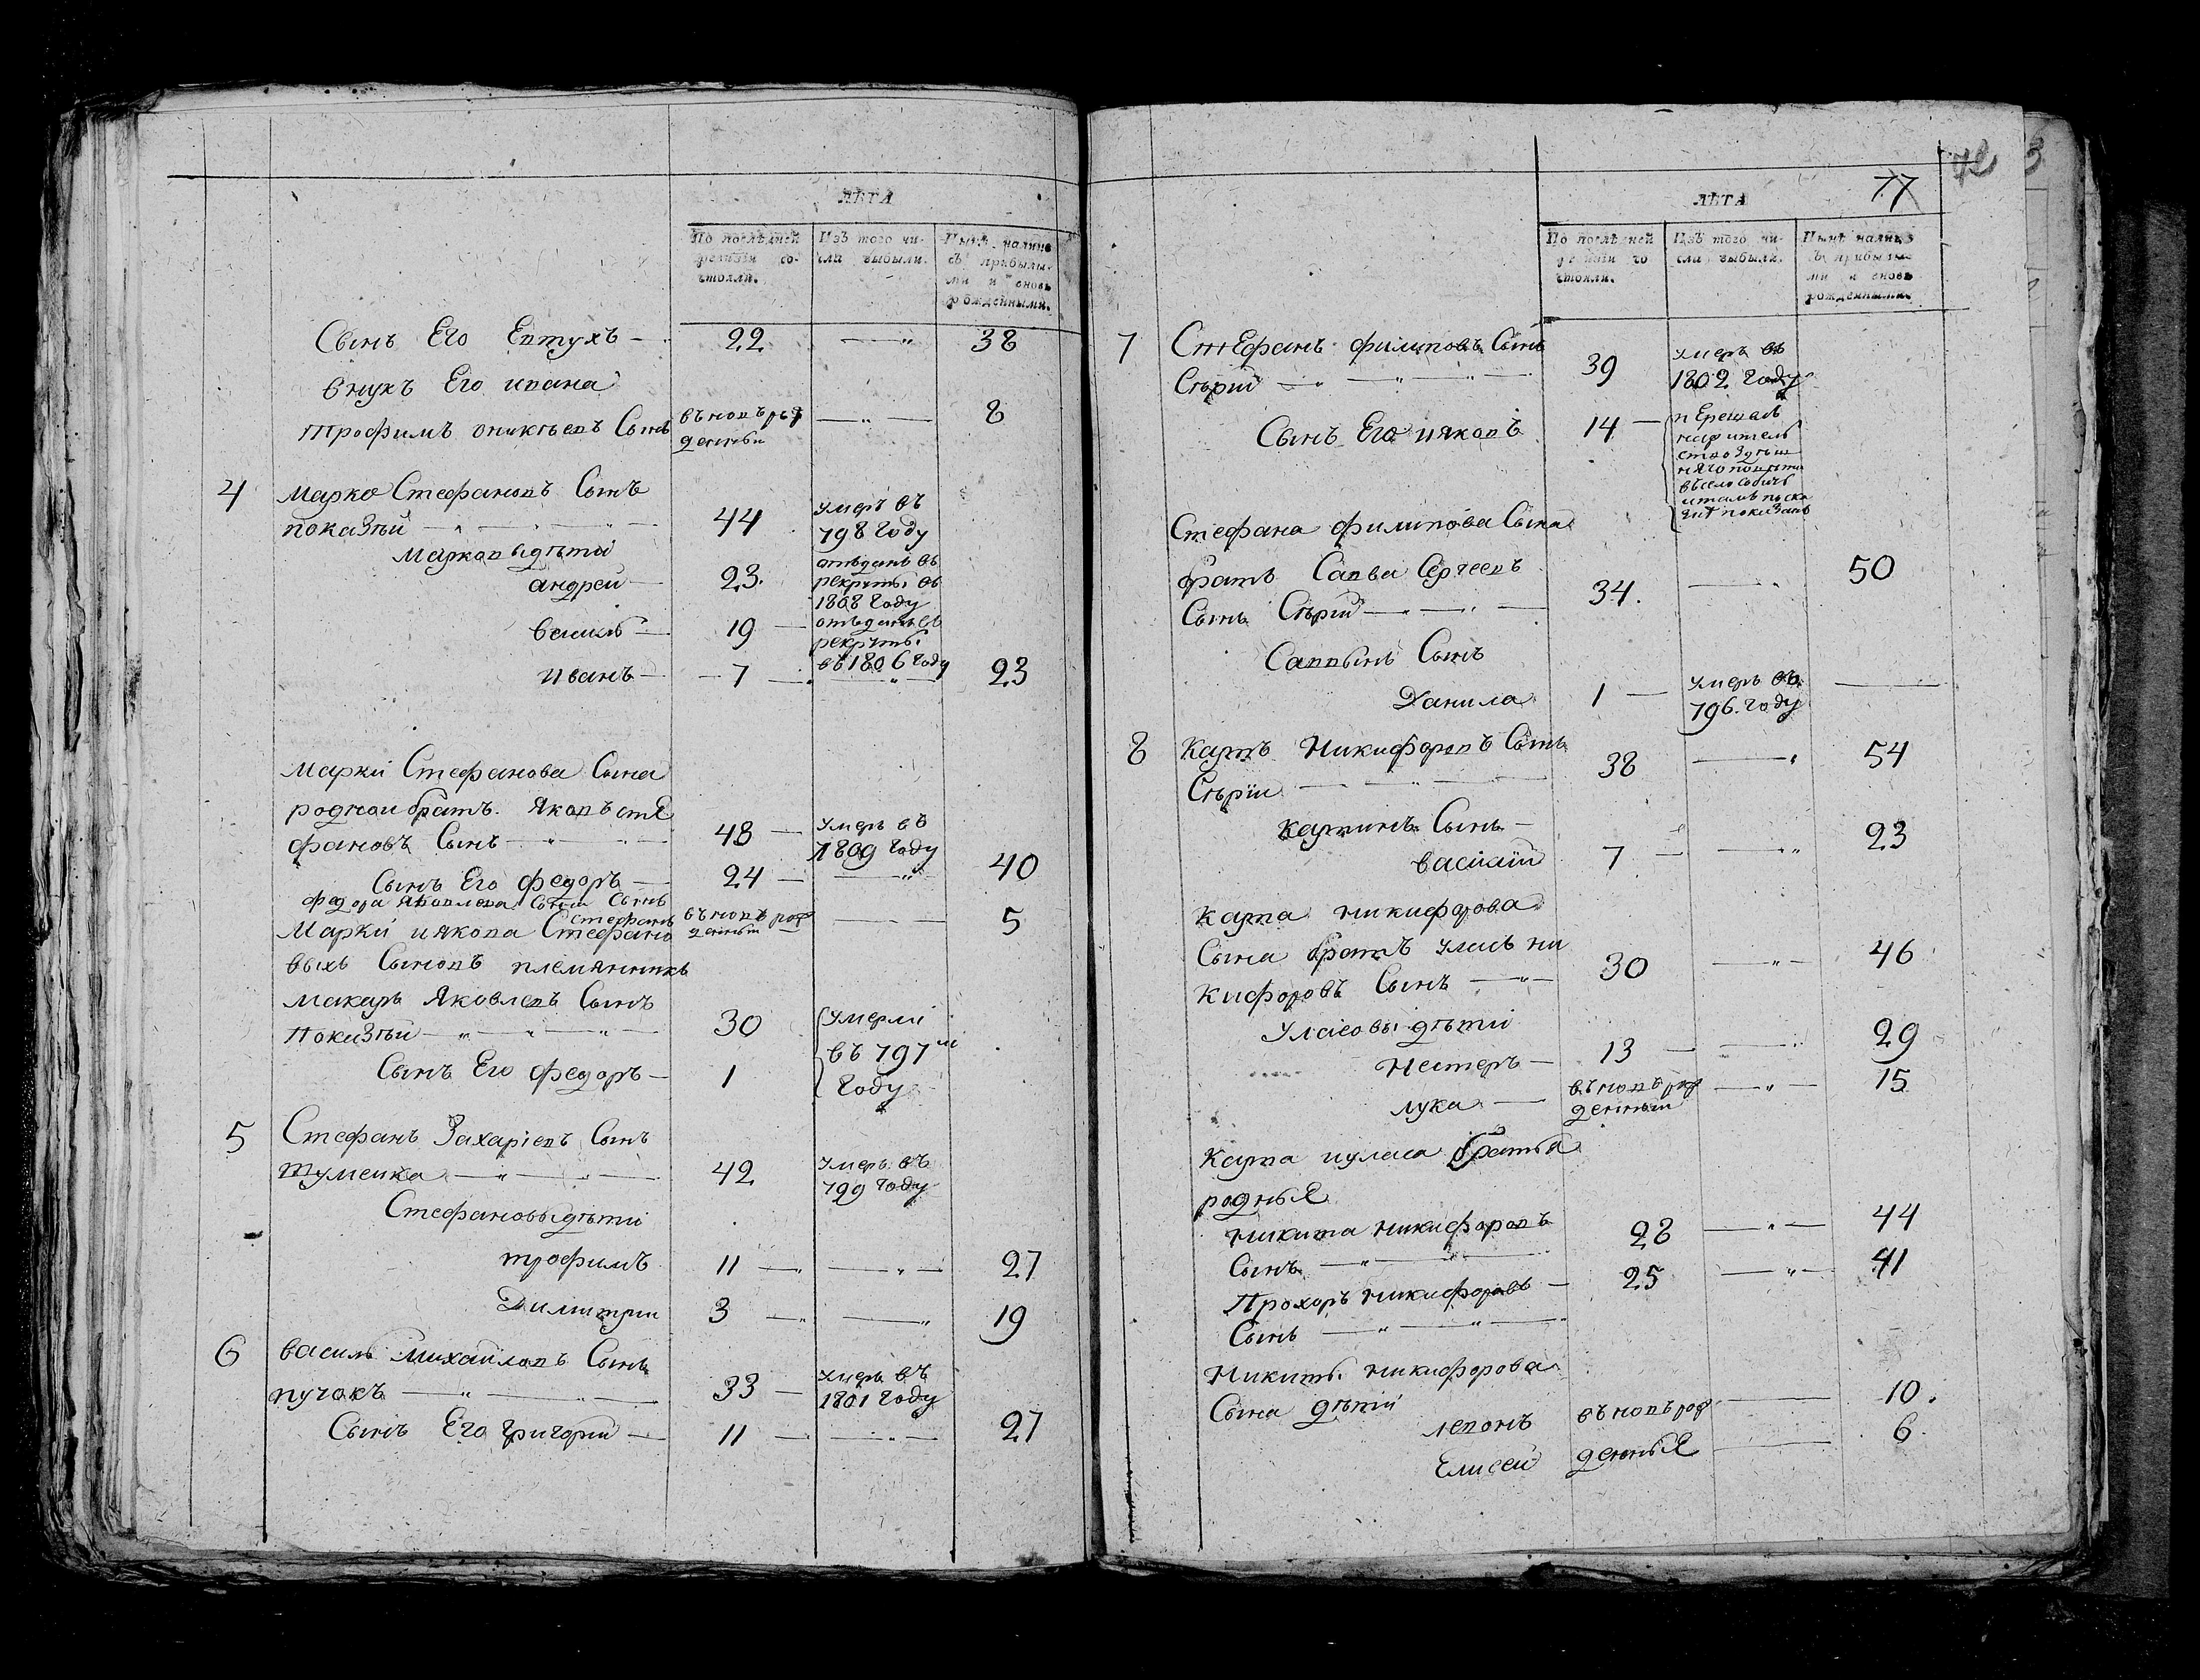 ЛѢТА
По послѣдней ревизіи состояли.
Изъ того числа выбыли.
Нынѣ налицо съ прибылыми и вновь рожденными.
Сынъ Его Евтухъ — 22 — 38
Внукъ Его ивана
Трофимъ Сынъ въновѣ рож
денный — 8
4 Марко Стефановъ Сынъ
показѣй — 44 умеръ въ
798 Году
Марковы дѣти
андрей — 23. отъданъ въ
рекруты въ
1808 Году
василь — 19 — отъданъ въ
рекруты
въ 1806 Году
иванъ — 7 — 23
Марки Стефанова Сына
родной братъ Яковъ стЕ
фановъ Сынъ — 48 — умеръ въ
1809 Году
Сынъ Его федоръ — 24 — 40
федора Яковлева Сына Сынъ
Стефанъ въновѣ рож
денный — 5
Марки иякова Стефано
выхъ Сыновъ племянникъ
Макаръ Яковлевъ Сынъ
Показѣй — 30 умерли
въ 797м
Году
Сынъ Его федоръ — 1
5 Стефанъ Захаріевъ Сынъ
Шуменка — 42 умеръ въ
799 Году
Стефановы дѣти
трофимъ 11 — 27
Димитрии 3 — 19
6 василь Михайловъ Сынъ
пучокъ — 33 — умеръ въ
1801 Году
Сынъ Его григорий — 11 — 27
72
77
3
ЛѢТА
По послѣдней ревизіи состояли.
Изъ того числа выбыли.
Нынѣ налицо съ прибылыми и вновь рожденными.
7 СтЕфанъ филиповъ Сынъ
Сѣрий — 39 умеръ въ
1802 Году
Сынъ Его ияковъ 14 — пЕрешелъ
нажитель
ство
въсело
показанъ
Стефана филипова Сына
братъ Савва Сергеевъ
Сынъ Сѣрий — 34. — 50
Саввынъ Сынъ
Данила 1 — умеръ въ
796. Году
8 Карпъ Никифоровъ Сынъ
Сѣрїи — 38 — 54
Карпинъ Сынъ —
василий 7 — 23
Карпа никифорова
Сына братъ уласъ ни
кифоровъ Сынъ — 30 — 46
Уласовы дѣти
Нестеръ — 13 — 29
лука — въновѣ рож
денный — 15
Карпа иуласа братья
родныЕ
никита никифоровъ
Сынъ — 28 — 44
Прохоръ никифоровъ —
Сынъ — 25 — 41
Никиты никифорова
Сына дѣти
левонъ въновѣ рож — 10.
Елисей денныЕ — 6.